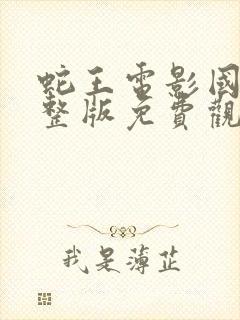 蛇王電影國
整版免費觀
我是薄芷